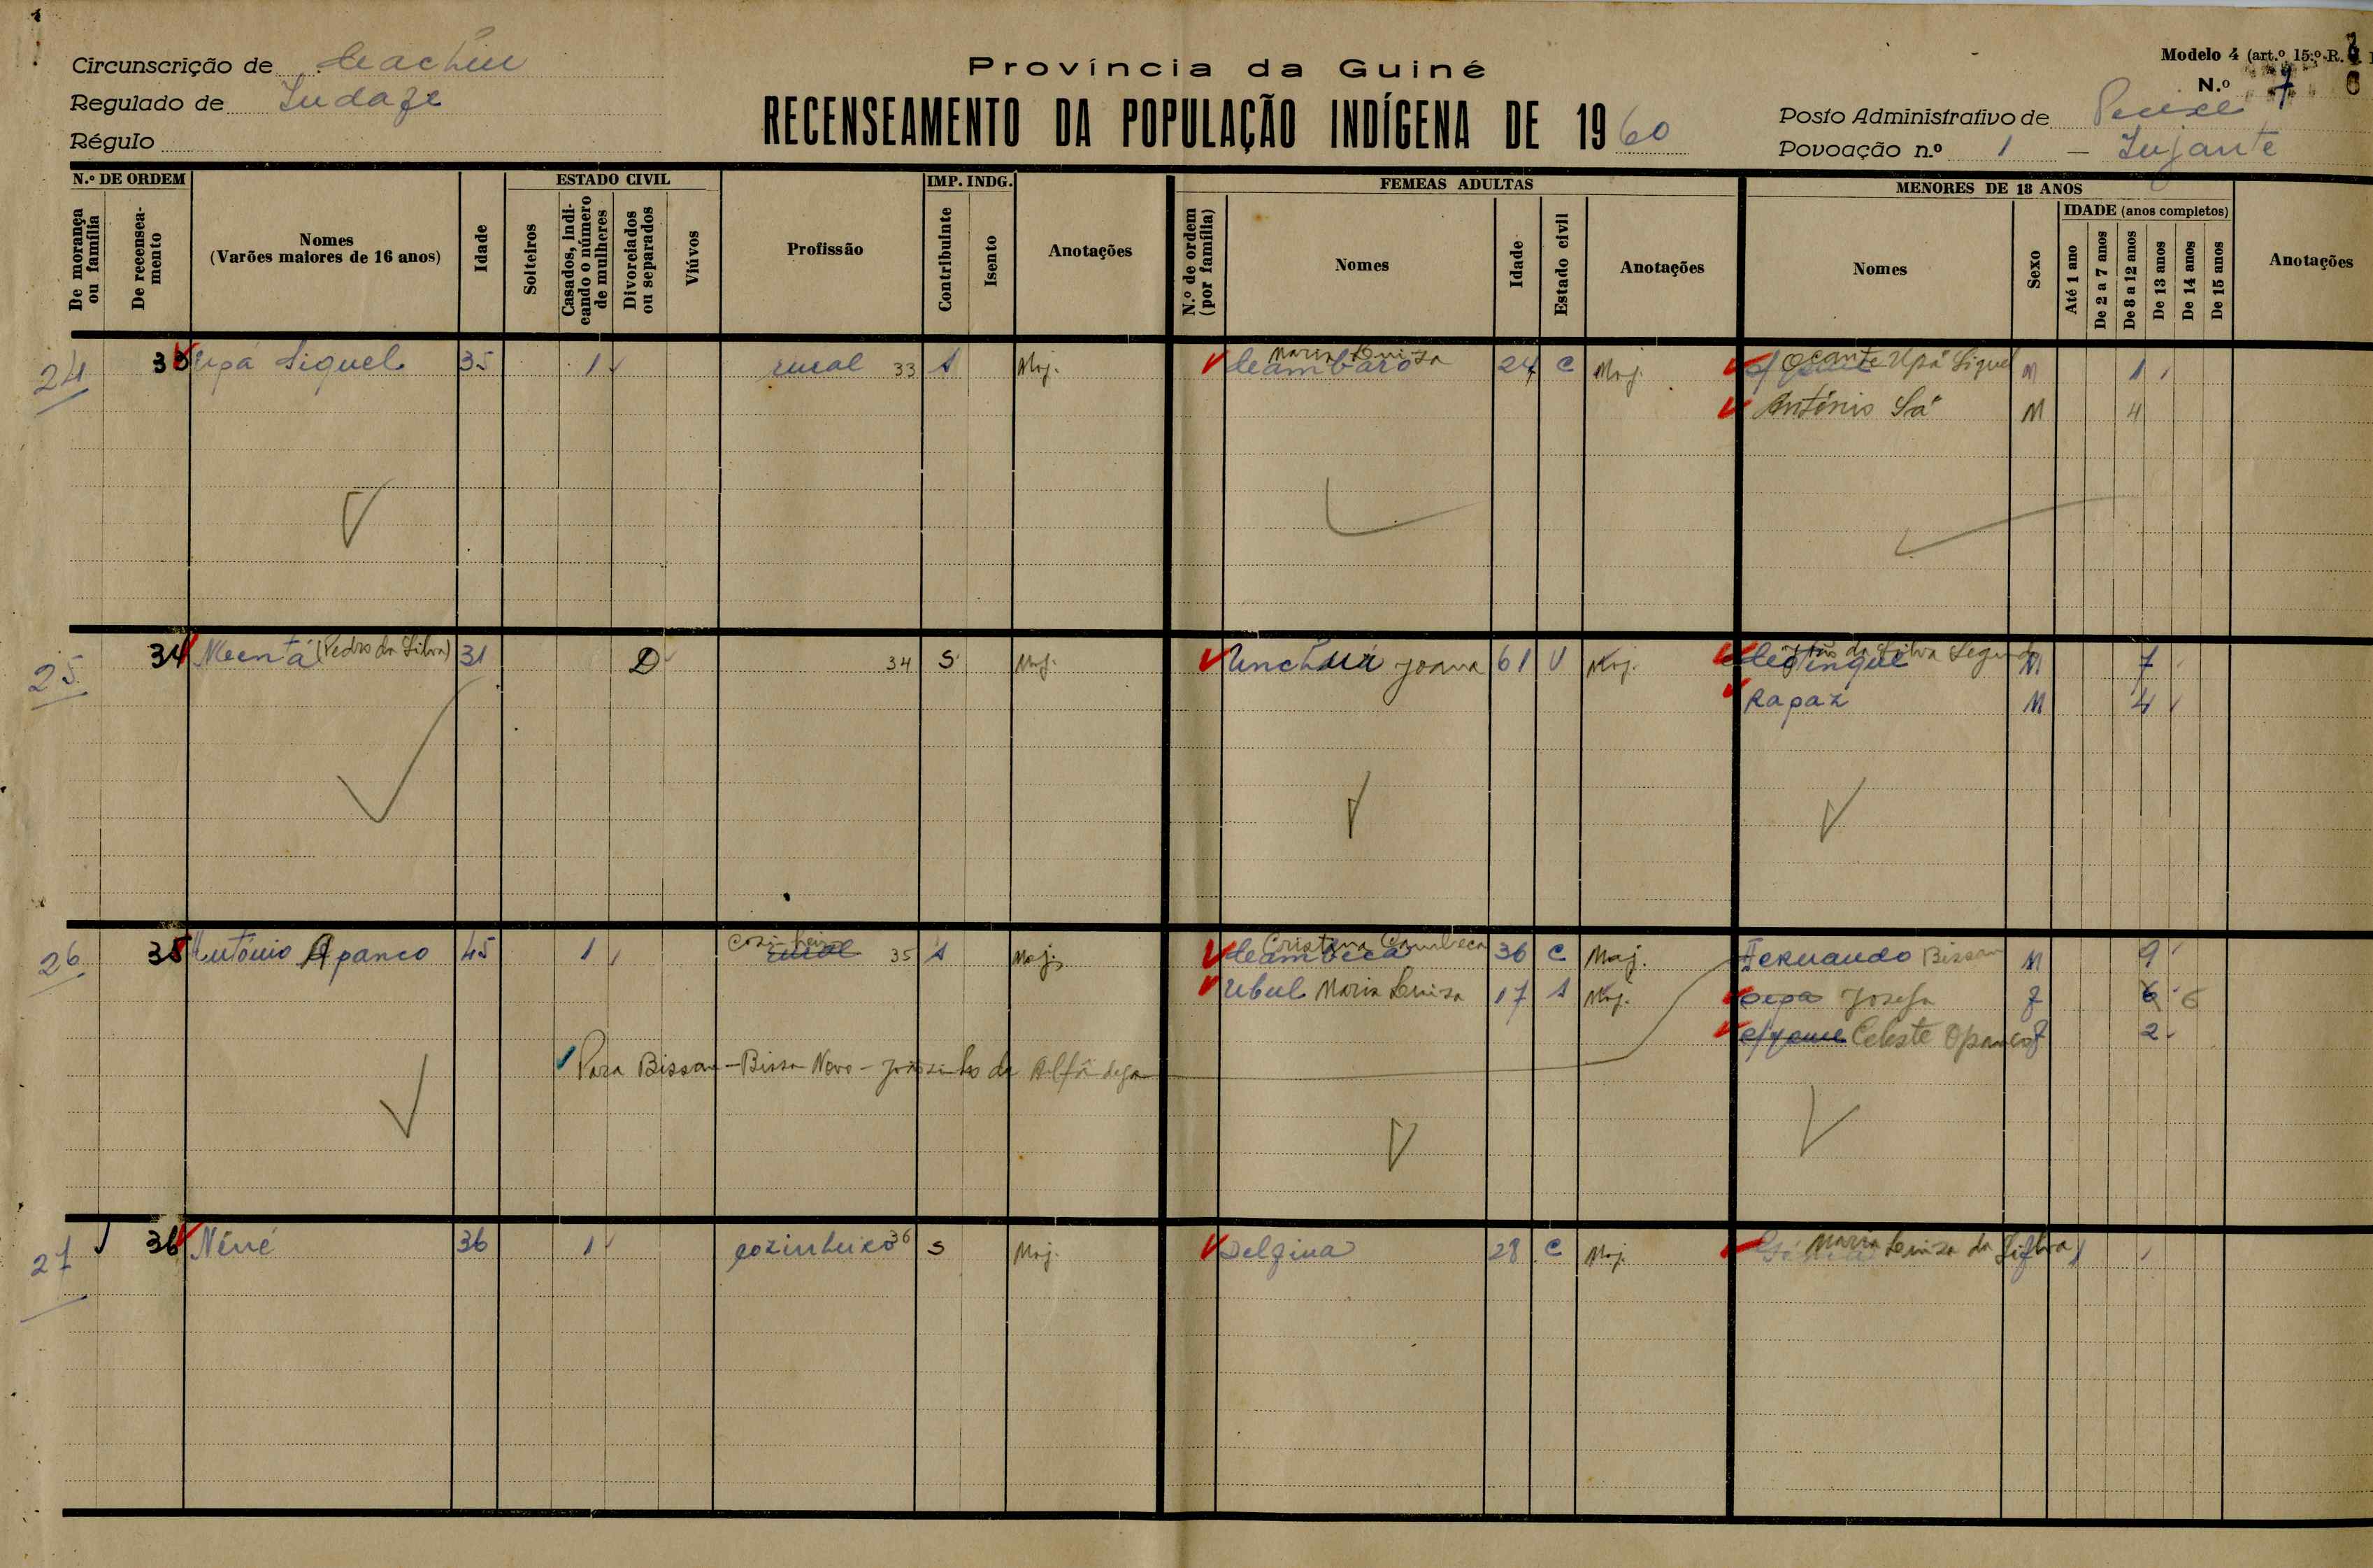 Circunscrição de Cacheu
Regulado de
Régulo
Província da Guiné
RECENSEAMENTO DA POPULAÇÃO INDÍGENA DE 1960
Modelo 4 (art.º 15.º R.
N.º 7
Posto Administrativo de
Povoação n.º 1 —
N.º DE ORDEM
De morança ou família
De recenseamento
Nomes
(Varões maiores de 16 anos)
Idade
ESTADO CIVIL
Solteiros
Casados, indicando o número de mulheres
Divorciados ou separados
Viúvos
Profissão
IMP. INDG.
Contribuinte
Isento
Anotações
FEMEAS ADULTAS
N.º de ordem (por família)
Nomes
Idade
Estado civil
Anotações
MENORES DE 18 ANOS
Nomes
Sexo
IDADE (anos completos)
Até 1 ano
De 2 a 7 anos
De 8 a 12 anos
De 13 anos
De 14 anos
De 15 anos
Anotações
24 33 Upá Siquel 35 1 rural 33 S Maj. Maria Luiza 24 C Maj. Ocante Upá Siquel M 1
António Sá M 4
25 34 (Pedro da Silva) 31 D 34 S Maj. Joana 61 V Maj. da Silva Segundo M 7
Rapaz M 4
26 35 António Apanco 45 1 cozinheiro rural 35 S Maj. Cristina Cambeca Cambeca 36 C Maj. Fernando Bissau M 9
Ubul Maria Luiza 17 S Maj. Josefa F 6 6
Celeste Opanco F 2
Para Bissau – Bissau Novo – Joãosinho da Alfândega
27 36 Néné 36 1 cozinheiro 36 S Maj. Delfina 28 C Maj. Maria Luiza da Silva F 1